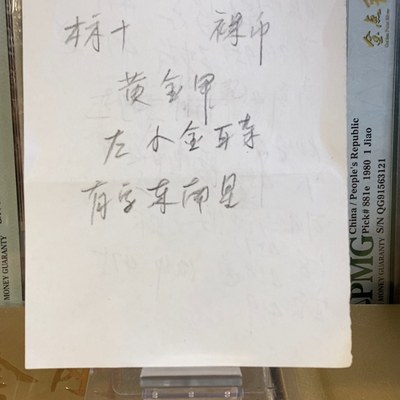 标十 裸币
黄金甲
左水金耳奔
有字东南星
金点
China / People's Republic
Pick# 881e 1980 1 Jiao
S/N QG91563121
MONEY GUARANTY
PMG
MONEY GUARANTY